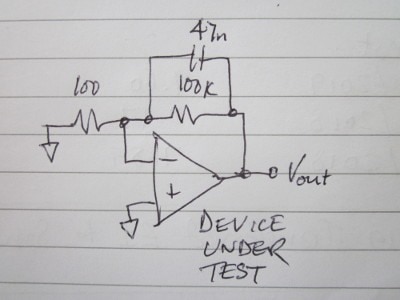 47n
100
100K
−
+
Vout
DEVICE
UNDER
TEST